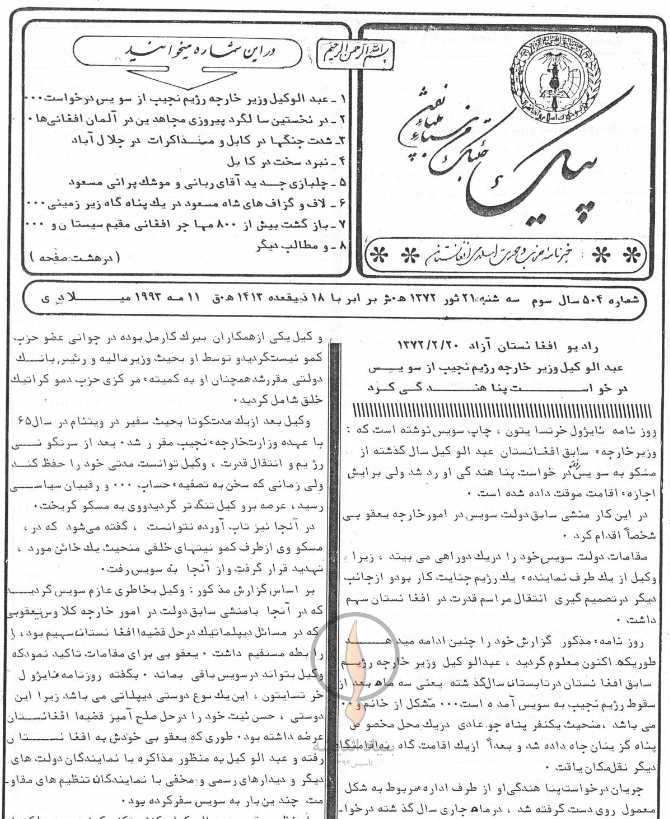 بسم الله الرحمن الرحیم
در این شماره میخوانید
۱ ـ عبد الوکیل وزیر خارجه رژیم نجیب از سویس درخواست۰۰۰
۲ ـ در نخستین سالگرد پیروزی مجاهدین در آلمان افغانی‌ها۰۰
۳ـ شدت جنگها در کابل و مسذاکرات در جلال آباد
۴ ـ نبرد سخت در کابل
۵ ـ چلبازی جدید آقای ربانی و موشک پرانی مسعود
۶ ـ لاف و گزاف های شاه مسعود در یک پناه گاه زیر زمینی۰۰۰
۷ ـ بازگشت بیش از ۸۰۰ مهاجر افغانی مقیم سیستان و ۰۰۰
۸ ـ و مطالب دیگر
( در هشت صفحه )
پیک
خبرنامه حزب وحدت اسلامی افغانستان
شماره ۵۰۴ سال سوم سه شنبه ۲۱ ثور ۱۳۷۲ هـ۰ش برابر با ۱۸ ذیقعده ۱۴۱۳ هـ۰ق ۱۱ مه ۱۹۹۳ میلادی
رادیو افغانستان آزاد ۱۳۷۲/۲/۲۰
عبد الوکیل وزیر خارجه رژیم نجیب از سویس
درخواست پناهندگی کرد
روزنامه نایژول خرتسایتون ، چاپ سویس نوشته است که :
وزیر خارجهء سابق افغانستان عبد الوکیل سال گذشته از
مسکو به سویس رفت در خواست پناهندگی او رد شد ولی برایش
اجازهء اقامت موقت داده شده است ۰
در این کار منشی سابق دولت سویس در امور خارجه یعقوبی
شخصاً اقدام کرد ۰
مقامات دولت سویس خود را دریک دوراهی می بیند ، زیرا
وکیل از یک طرف نمایندهء یک رژیم جنایت کار بود و از جانب
دیگر در تصمیم گیری انتقال مراسم قدرت در افغانستان سهم
داشت ۰
روزنامهء مذکور گزارش خود را چنین ادامه میدهد
طوریکه اکنون معلوم گردید ، عبدالوکیل وزیر خارجه رژیم
سابق افغانستان در تابستان سال گذشته یعنی سه ماه بعد از
سقوط رژیم نجیب به سویس آمده است۰۰۰ متشکل از خانم و۰۰
می باشد ،منحیث یکنفر پناه جو عادی در یک محل مخصوص
پناه گزینان جاه داده شد و بعداً از یک اقامت گاه به اقامتگاه
دیگر نقل مکان یافت ۰
جریان درخواست پناهندگی او از طرف اداره مربوط به شکل
معمول روی دست گرفته شد ، در ماه جاری سال گذشته درخوا‌ـ
وکیل یکی از همکاران ببرک کارمل بوده در جوانی عضو حزب
کمونیست گردید و توسط او بحیث وزیر مالیه و رئیس بانک
دولتی مقرر شد همچنان او به کمیتهء مرکزی حزب دموکراتیک
خلق شامل گردید ۰
وکیل بعد از یک مدت کوتا بحیث سفیر در ویتنام در سال ۶۵
با عهده وزارت خارجهء نجیب مقرر شد ۰ بعد از سرنگونی
رژیم و انتقال قدرت ، وکیل توانست مدتی خود را حفظ کند
ولی زمانی که سخن به تصفیهء حساب ۰۰۰ و رقیبان سیاسی
رسید ، عرصه برو کیل تنگ تر گردید و وی به مسکو گریخت ۰
در آنجا نیز تاب آورده نتوانست ، گفته می‌شود که در ،
مسکو وی از طرف کمونیتهای خلقی منحیث یک خائن مورد ،
تهدید قرار گرفت و از آنجا به سویس رفت ۰
بر اساس گزارش مذکور : وکیل بخاطری عازم سویس گردید
که در آنجا با منشی سابق دولت در امور خارجه کلاوس یعقوبی
که در مسائل دیپلماتیک در حل قضیهء افغانستان سهیم بود ،
رابطه مستقیم داشت ۰ یعقوبی برای مقامات تاکید نمود که
وکیل بتواند در سویس باقی بماند ۰ بگفته روزنامه نایژول
خرتسایتون ، این یک نوع دوستی دیپلماتی می باشد زیرا این
دوستی ، حسن ثبت خود را در حل صلح آمیز قضیهء افغانستان
عرضه داشته بود ۰ طوری که یعقوبی خودش به افغانستان
رفته و عبد الوکیل به منظور مذاکره با نمایندگان دولت های
دیگر و دیدارهای رسمی و مخفی با نمایندگان تنظیم های مقاو‌ـ
مت چندین بار به سویس سفر کرده بود ۰